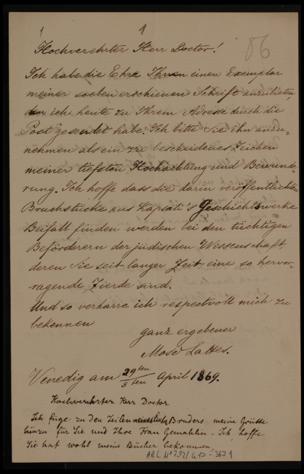 1
86
Hochverehrter Herr Doctor!
Ich habe die Ehre Ihnen einen Exemplar
meiner soeben erschienen Schrift
ich heute zu Ihrem Adresse durch die
Post gesendet habe. Ich bitte Sie ihn
nehmen als ein bescheidenes Zeichen
meiner tiefsten Hochachtung und Bewunde-
rung. Ich hoffe dass die darin veröffentlichten
Bruchstücke aus Kapsali's Geschichtswerke
Beifall finden werden bei den tüchtigen
Beförderern der jüdischen Wissenschaft
deren Sie seit langer Zeit eine so hervor-
ragende Zierde sind.
Und so verharre ich respectvoll mich zu
bekennen
ganz ergebener
Mosè Lattes.
Venedig am April 1869.
Hochverehrter Herr Doctor
Ich füge zu den Zeilen Bruders meine Grüsse
für Sie und Ihre Frau Gemahlin. Ich hoffe
Sie hat wohl meine Bücher bekommen
ARC. 4° 792